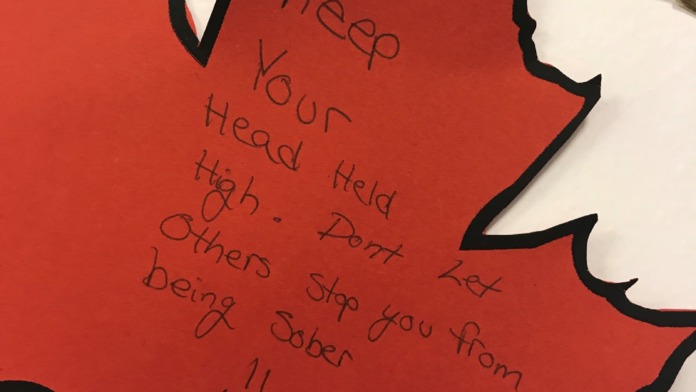 Keep
Your
Head Held
High. Dont Let
Others Stop you from
being Sober
!!